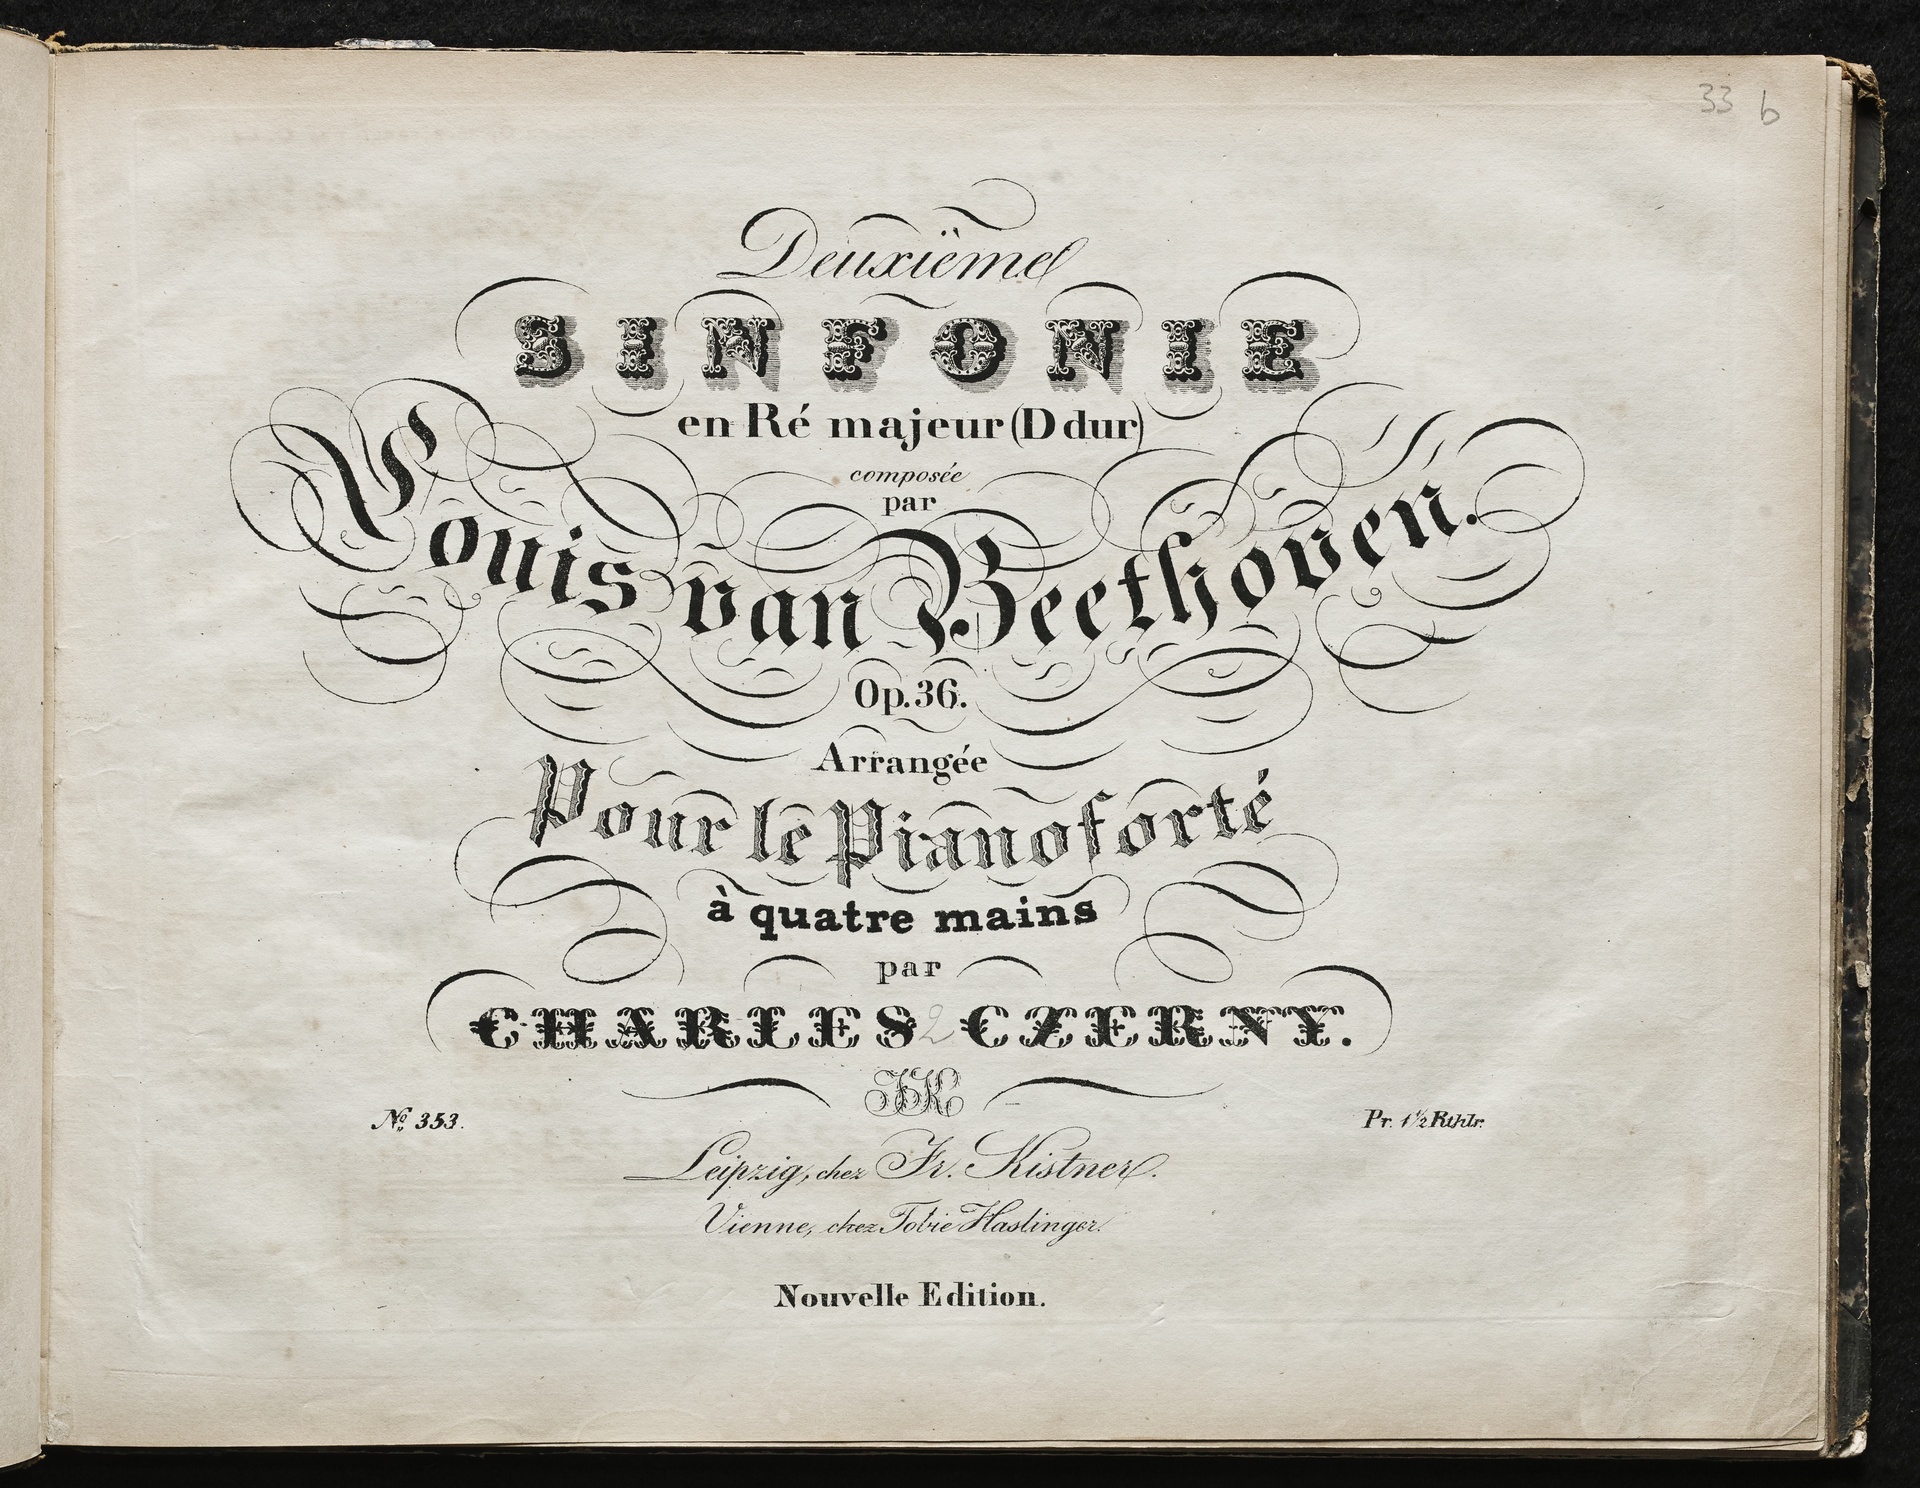 33 b
Deuxiëme
SINFONIE
en Ré majeur (D dur)
composée
par
Louis van Beethoven.
Op. 36.
Arrangée
Pour le Pianoforté
à quatre mains
par
CHARLES 2 CZERNY.
FK
No. 353.
Pr. 1 1/2 Rthlr.
Leipzig, chez Fr. Kistner.
Vienne, chez Tobie Haslinger.
Nouvelle Edition.